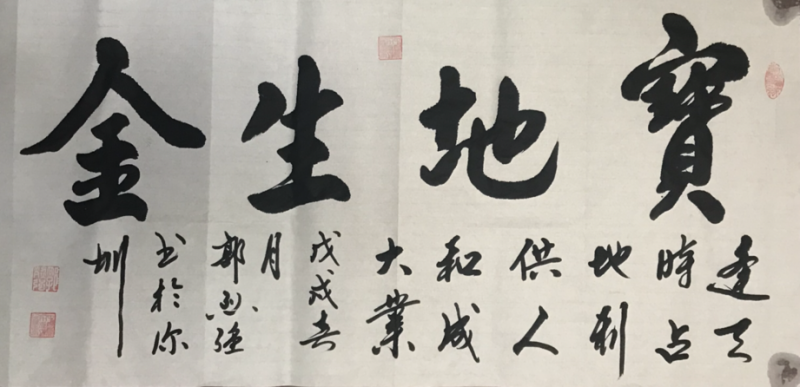 寶地生金
逢天
時占
地利
供人
和成
大業
戊戌春
月
郭
书於深
圳